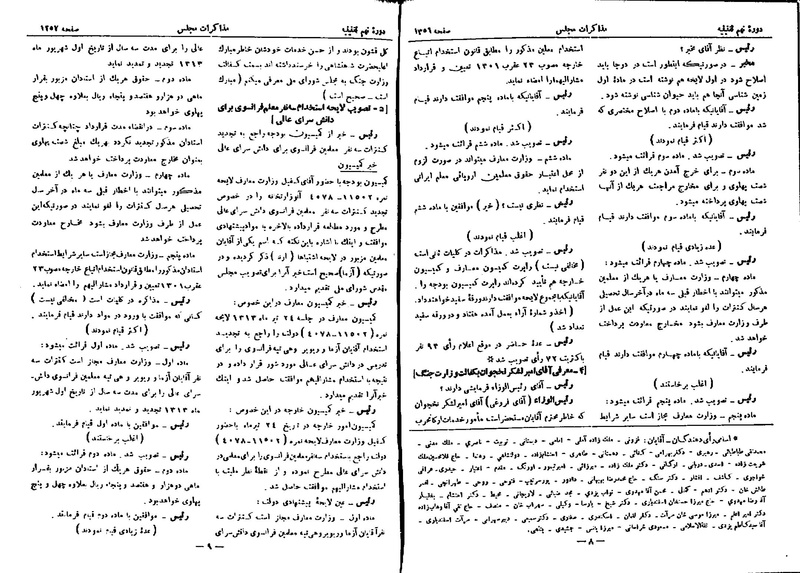 دورۀ نهم تقنینیه
مذاکرات مجلس
صفحه ۱۳۵۶
رئیس ـ نظر آقای مخبر؟
مخبر ـ در صورتیکه اینطور است در دوجا باید
اصلاح شود در اول لایحه هم نوشته است در مادۀ اول
زمین شناسی آنجا هم باید حیوان شناسی نوشته شود.
رئیس ـ آقایانیکه باماده دوم با اصلاح مختصری که
شد موافقت دارند قیام فرمایند
(اکثر قیام نمودند)
رئیس ـ تصویب شد. ماده سوم قرائت میشود.
ماده سوم ـ برای خرج آمدن هریک از این دو نفر
شصت پهلوی و برای مخارج مراجعت هریک از آنها
شصت پهلوی پرداخته میشود.
رئیس ـ آقایانیکه باماده سوم موافقت دارند قیام
فرمایند.
(عده زیادی قیام نمودند)
رئیس ـ تصویب شد. ماده چهارم قرائت میشود:
ماده چهارم ـ وزارت معارف یا هریک از معلمین
مذکور میتوانند با اخطار قبلی سه ماه در آخر سال تحصیلی
هر سال کنترات را لغو نمایند در صورتیکه این عمل از
طرف وزارت معارف بشود مخارج معاودت پرداخت
خواهد شد.
رئیس ـ آقایانیکه باماده چهارم موافقت دارند قیام
فرمایند.
(اغلب برخاستند)
رئیس ـ تصویب شد. ماده پنجم قرائت میشود:
ماده پنجم ـ وزارت معارف مجاز است سایر شرایط
استخدام معلمین مذکور را مطابق قانون استخدام اتباع
خارجه مصوب ۲۳ عقرب ۱۳۰۱ تعیین و قرارداد
مشارالیهم را امضاء نماید.
رئیس ـ آقایانیکه باماده پنجم موافقت دارند قیام
فرمایند.
(اکثر قیام نمودند)
رئیس ـ تصویب شد. ماده ششم قرائت میشود.
ماده ششم ـ وزارت معارف میتواند در صورت لزوم
از محل اعتبار حقوق معلمین اروپائی معلم ایرانی
استخدام نماید.
رئیس ـ نظری نیست؟ (خیر) موافقین با ماده ششم
قیام فرمایند.
(اغلب قیام نمودند)
رئیس ـ تصویب شد. مذاکرات در کلیات ثانی است
(مخالفی نیست) راپرت کمیسیون معارف و کمیسیون
خارجه هم تأیید کرده‌اند راپرت کمیسیون بودجه را.
آقایانیکه بامجموع لایحه موافقت دارند ورقۀ سفید خواهند داد.
(اخذ و شمارۀ آراء بعمل آمده هفتاد و دو ورقه سفید
تعداد شد)
رئیس ـ عدۀ حاضر در موقع اعلام رأی ۹۳ نفر
باکثریت ۷۲ رأی تصویب شد
[۴ـ معرفی آقای امیرلشکر نخجوان بکفالت وزارت جنگ]
رئیس ـ آقای رئیس الوزراء فرمایشی دارند؟
رئیس الوزراء (آقای فروغی) آقای امیرلشکر نخجوان
که خاطر محترم آقایان مستحضر است مأمور خدمات ارکان حرب
— ۸ —
صفحه ۱۳۵۷
مذاکرات مجلس
دورۀ نهم تقنینیه
کل قشون بودند و از حسن خدمات خودشان خاطر مبارک
اعلیحضرت شاهنشاهی را خرسند داشته اند بسمت کفالت
وزارت جنگ به مجلس شورای ملی معرفی میکنم (مبارک
است ـ صحیح است)
[۵ـ تصویب لایحه استخدام سه نفر معلم فرانسوی برای دانش سرای عالی]
رئیس ـ خبر از کمیسیون بودجه راجع به تجدید
کنترات سه نفر معلمین فرانسوی برای دانش سرای عالی
خبر کمیسیون
کمیسیون بودجه با حضور آقای کفیل وزارت معارف لایحه
نمره ۱۱۵۰۲ـ۴۰۷۸ آنوزارتخانه را در خصوص
تجدید کنترات سه نفر معلمین فرانسوی دانش سرای عالی
مطرح و مورد مطالعه قرارداد بالاخره به مواد پیشنهادی
موافقت و اینک با اشاره باین نکته که اسم یکی از آقایان
معلمین مزبور در لایحه اشتباهاً (ارد) ذکر گردیده و در
صورتیکه (آرما) صحیح است خبر آنرا برای تصویب مجلس
مقدس شورای ملی تقدیم میدارد.
رئیس ـ خبر کمیسیون معارف در این خصوص:
کمیسیون معارف در جلسه ۲۴ تیر ماه ۱۳۱۳ لایحه
نمره (۱۱۵۰۲ـ۴۰۷۸) دولت را راجع به تجدید
استخدام آقایان آرما و ریویر وهی تیه فرانسوی را برای
تدریس در دانش سرای عالی مورد شور قرار داده و در
نتیجه با استخدام مشارالیهم موافقت حاصل شد و اینک
خبر آنرا تقدیم میدارد.
رئیس ـ خبر کمیسیون خارجه در این خصوص:
کمیسیون امور خارجه در تاریخ ۲۴ تیرماه باحضور
کفیل وزارت معارف لایحه نمره (۱۱۵۰۲ـ۴۰۷۸)
دولت راجع باستخدام سه نفر معلمین فرانسوی را برای معلمی در
دانش سرای عالی مطرح نموده و از نقطۀ نظر ملیت با
استخدام مشارالیهم موافقت حاصل شد.
رئیس ـ عین لایحۀ پیشنهادی دولت:
ماده اول ـ وزارت معارف مجاز است کنترات سه
نفر آقایان آرما و ریویر وهی تیه معلمین فرانسوی دانش سرای
عالی را برای مدت سه سال از تاریخ اول شهریور ماه
۱۳۱۳ تجدید و تمدید نماید
ماده دوم ـ حقوق هریک از استادان مزبور بقرار
ماهی دو هزار و هفتصد و پنجاه ریال بعلاوه چهل و پنج
پهلوی خواهد بود
ماده سوم ـ در انقضاء مدت قرارداد چنانچه کنترات
استادان مذکور تجدید نگردد بهریک مبلغ شصت پهلوی
بعنوان مخارج معاودت پرداخت خواهد شد
ماده چهارم ـ وزارت معارف یا هر یک از معلمین
مذکور میتوانند با اخطار قبلی سه ماه در آخر سال
تحصیلی هر سال کنترات را لغو نمایند در صورتیکه این
عمل از طرف وزارت معارف بشود مخارج معاودت
پرداخت خواهد شد
ماده پنجم ـ وزارت معارف مجاز است سایر شرایط استخدام
استادان مذکور را مطابق قانون استخدام اتباع خارجه مصوب ۲۳
عقرب ۱۳۰۱ تعیین و قرارداد مشارالیهم را امضاء نماید.
رئیس ـ مذاکره در کلیات است (مخالفی نیست)
کسانی که موافقت با ورود در مواد دارند قیام فرمایند.
(اکثر قیام نمودند)
رئیس ـ تصویب شد. ماده اول قرائت میشود:
ماده اول ـ وزارت معارف مجاز است کنترات سه
نفر آقایان آرما و ریویر و هی تیه معلمین فرانسوی دانش‌
سرای عالی را برای مدت سه سال از تاریخ اول شهریور
ماه ۱۳۱۳ تجدید و تمدید نماید.
رئیس ـ موافقین با ماده اول قیام فرمایند.
(اغلب برخاستند)
رئیس ـ تصویب شد. ماده دوم قرائت میشود:
ماده دوم ـ حقوق هریک از استادان مزبور بقرار
ماهی دو هزار و هفتصد و پنجاه ریال بعلاوه چهل و پنج
پهلوی خواهد بود.
رئیس ـ موافقین با ماده دوم قیام فرمایند.
(عدۀ زیادی قیام نمودند)
— ۹ —